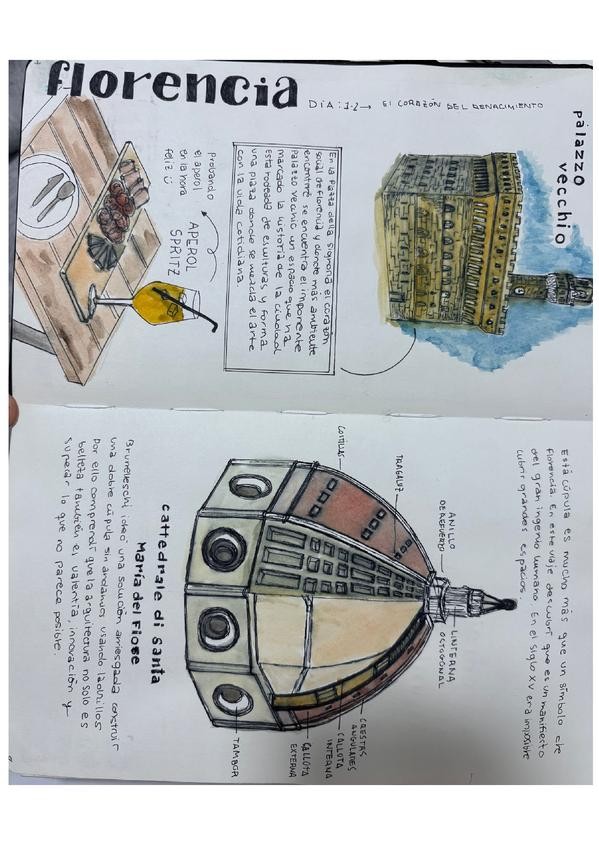 florencia
DIA: 1-2 → El CORAZÓN DEL RENACIMIENTO
palazzo
vecchio
En la Piazza della signoria el corazón
social de florencia y donde más ambiente
encontré se encuentra el imponente
Palazzo vecchio un espacio que ha
marcado la historia de la ciudad
Esta rodeada de esculturas y forma
una plaza donde se mezcla el arte
con la vida cotidiana.
APEROL
SPRITZ
Probando
el aperol
en la hora
feliz
Esta cúpula es mucho más que un símbolo de
florencia. En este viaje descubrí que es un manifiesto
del gran ingenio humano. En el siglo XV era imposible
cubrir grandes espacios.
COSTILLAS
TRAGALUZ
ANILLO
DE REFUERZO
LINTERNA
OCTOGONAL
CRESTAS
ANGULARES
CALLOTA
INTERNA
CALLOTA
EXTERNA
TAMBOR
cattedrale di santa
María del Fiose
Brunelleschi ideó una solución arriesgada construir
una doble cúpula sin andamios usando ladrillos
Por ello comprendí que la arquitectura no solo es
belleza también el valentía, innovación y
superar lo que no parece posible.